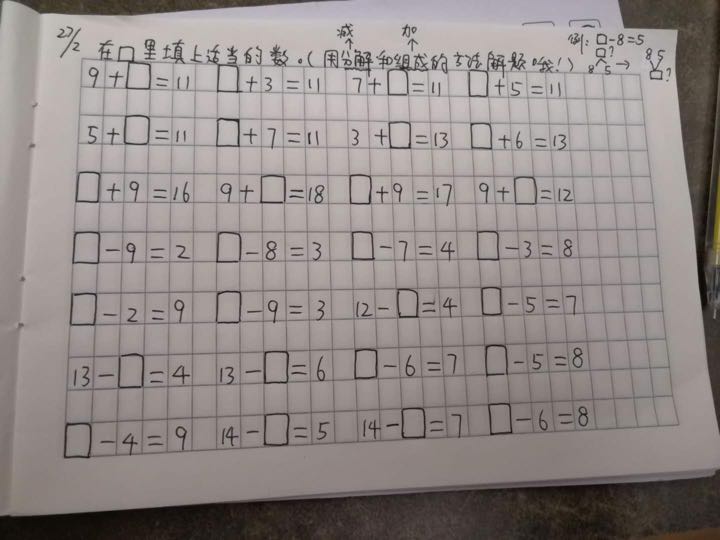 27/2 在□里填上适当的数。(用分解和组成的方法解题哦!)
减 加
例: □-8=5
□?
8 5 →
8 5
□?
9+□=11 □+3=11 7+□=11 □+5=11
5+□=11 □+7=11 3+□=13 □+6=13
□+9=16 9+□=18 □+9=17 9+□=12
□-9=2 □-8=3 □-7=4 □-3=8
□-2=9 □-9=3 12-□=4 □-5=7
13-□=4 13-□=6 □-6=7 □-5=8
□-4=9 14-□=5 14-□=7 □-6=8